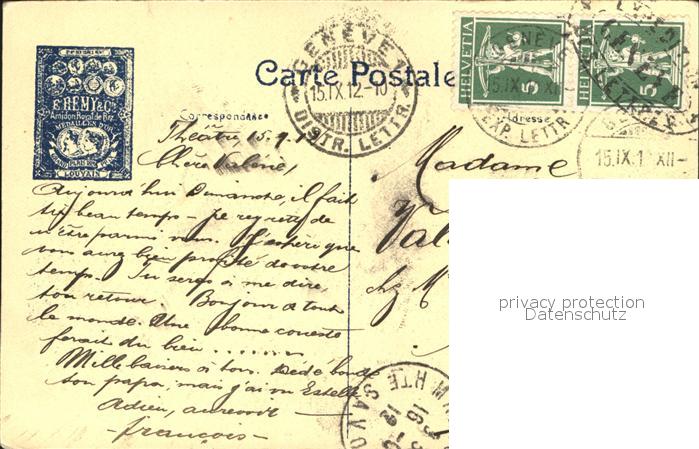 E. REMY & Cº
Amidon Royal de Riz
MEDAILLES D'OR
LOUVAIN
Carte Postale
Correspondance
Adresse
GENÈVE 1
15.IX.12.-10
DISTR. LETTR.
HELVETIA
5
HELVETIA
5
EXP. LETTR.
15.IX.1 XII-
HTE SAVO
Théâtre, 15.9.1
Chère Valérie,
Aujourd'hui Dimanche, il fait
si beau temps - je regrette de
n'être parmi vous. J'espère que
vous aurez bien profité de votre
temps. Tu seras à me dire,
ton retour. Bonjour à tout
le monde. Une bonne
ferait du bien .......
Mille baisers à tous. Dédé boude
son papa, mais j'ai vu Estelle
Adieu, au revoir
-François-
Madame
Val
chz M
privacy protection
Datenschutz